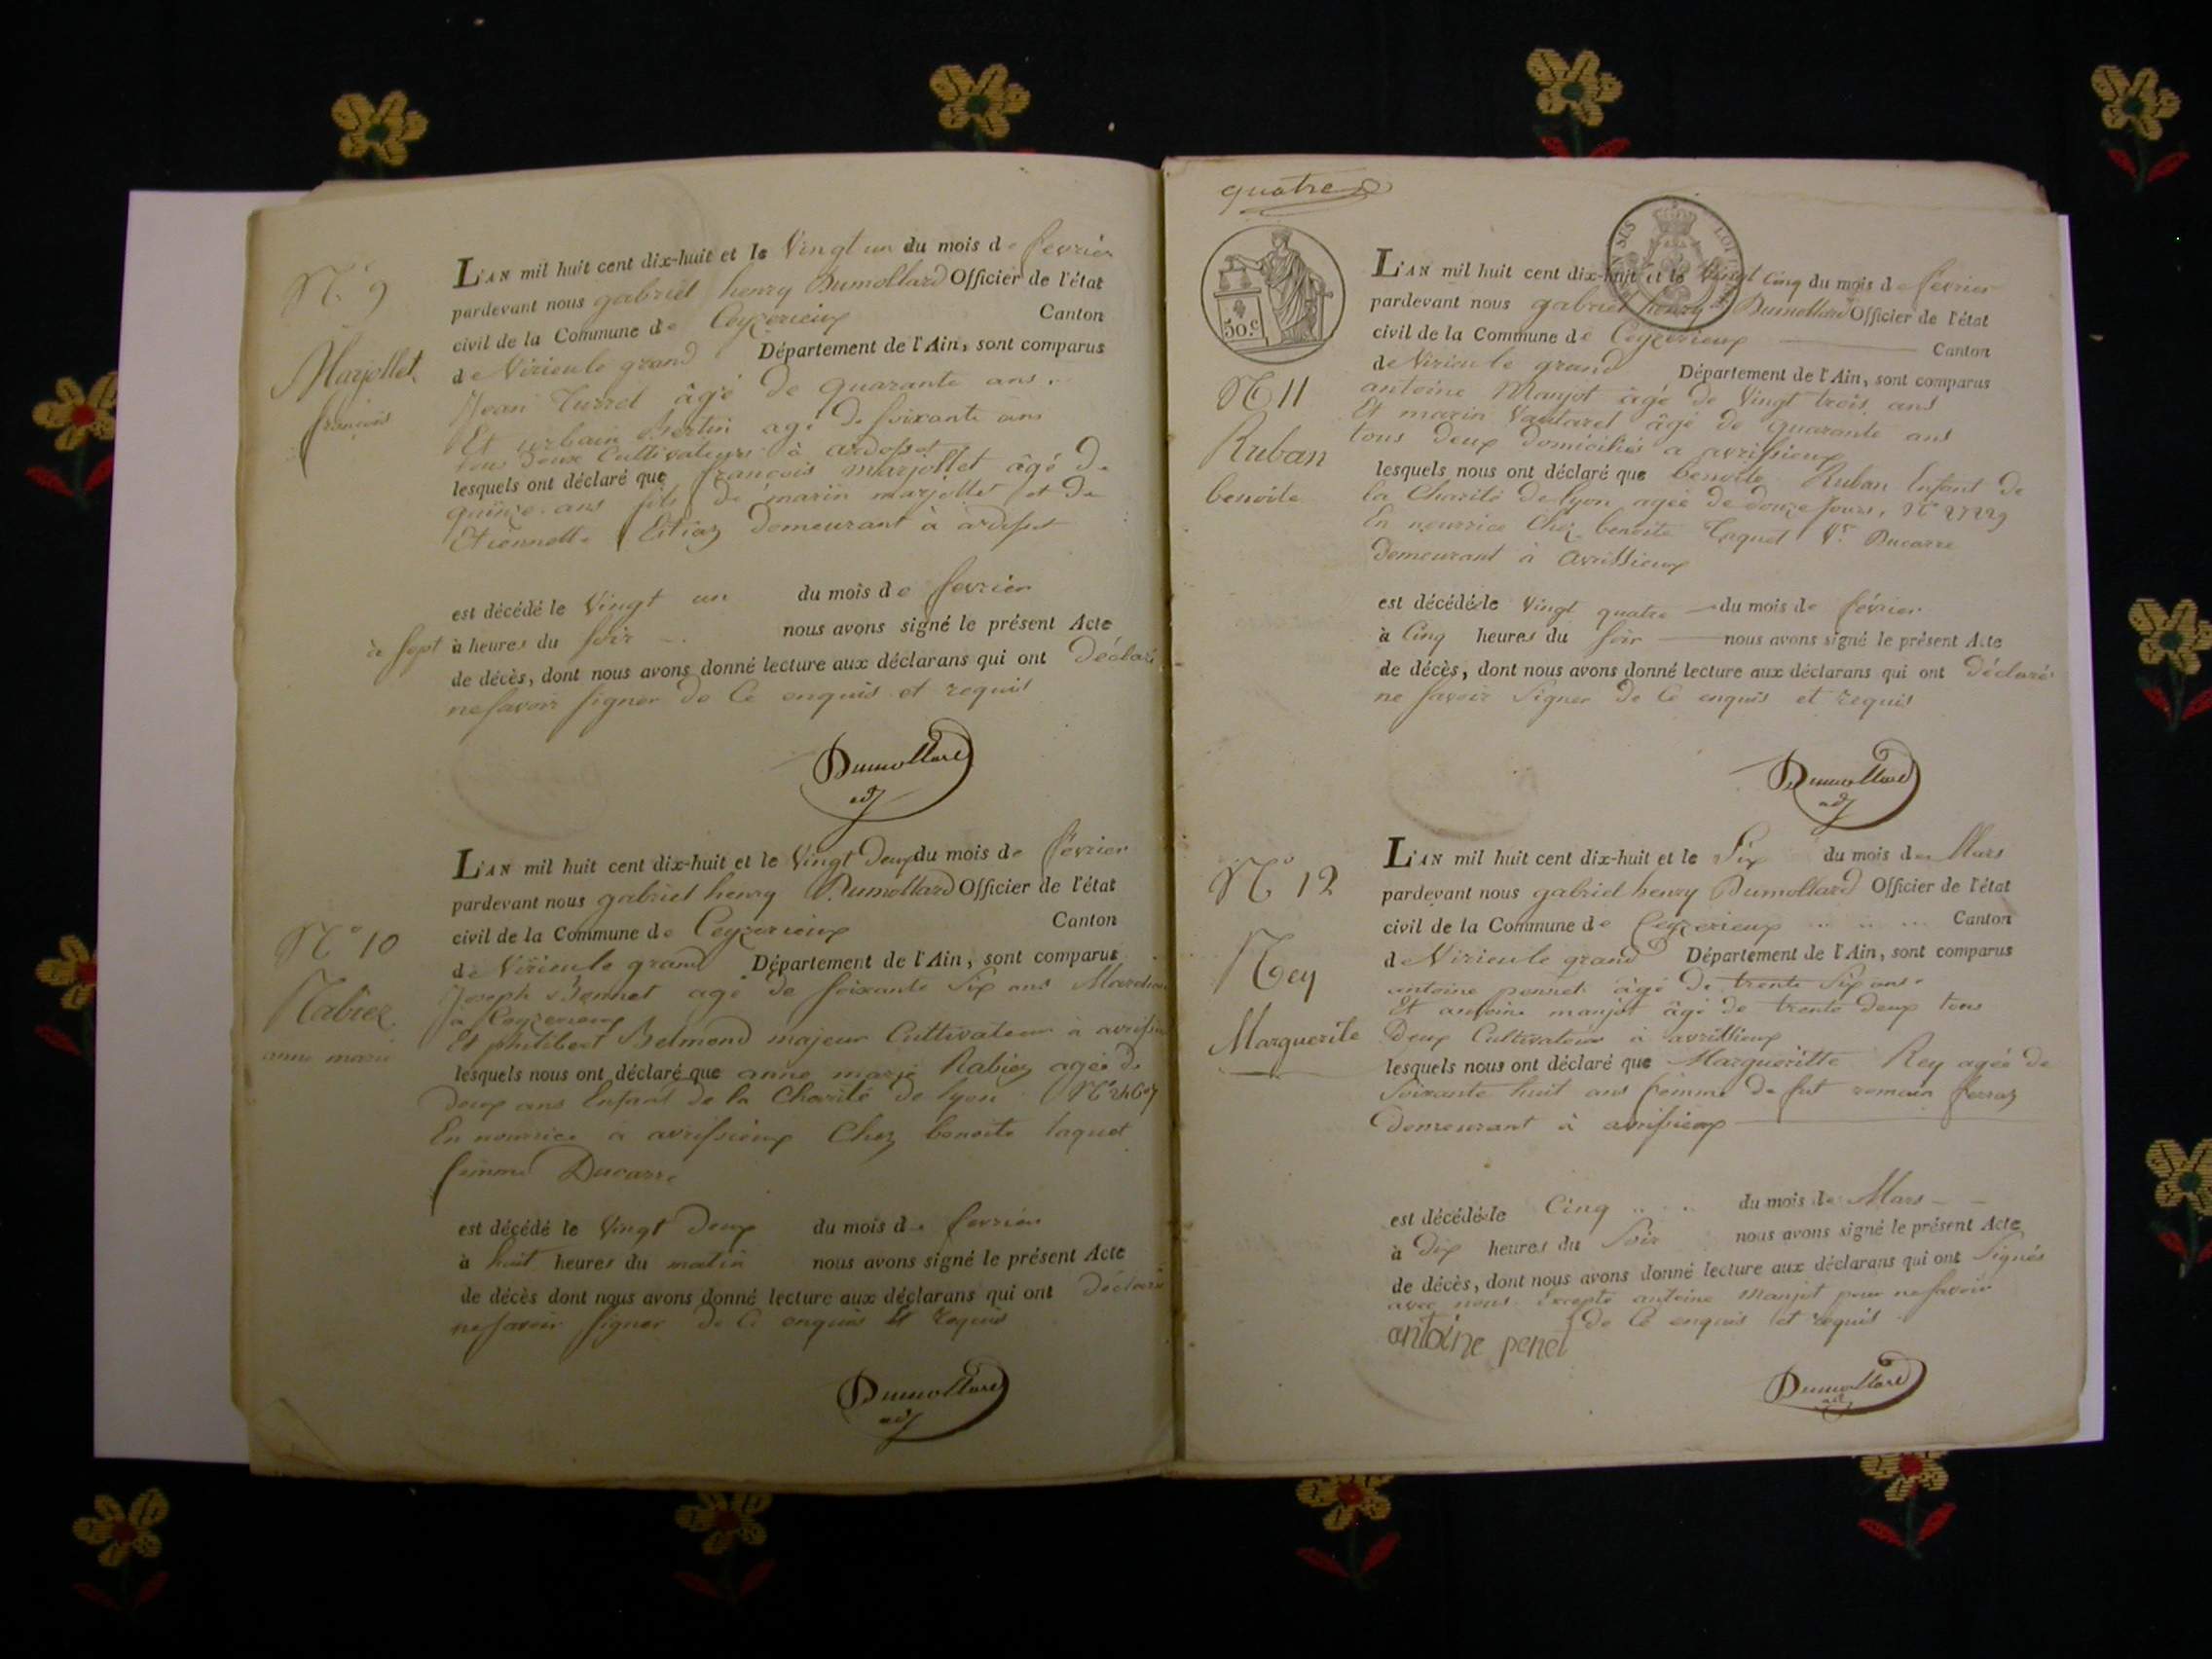 N.° 9
Marjollet
françois
L'AN mil huit cent dix-huit et le Vingt un du mois de fevrier
pardevant nous gabriel henry Dumollard Officier de l'état
civil de la Commune de Ceyzerieux Canton
de Virieu le grand Département de l'Ain, sont comparus
Jean Turrel âgé de quarante ans.
Et urbain Bertin agé de soixante ans
tous deux Cultivateurs à ardosset
lesquels ont déclaré que françois marjollet âgé de
quinze ans fils de marin marjollet et de
Etiennette demeurant à ardosset
est décédé le Vingt un du mois de fevrier
à sept à heures du soir nous avons signé le présent Acte
de décès, dont nous avons donné lecture aux déclarans qui ont déclaré
ne savoir signer de Ce enquis et requis
Dumollard
adj
N° 10
Rabiez
anne marie
L'AN mil huit cent dix-huit et le Vingt deux du mois de février
pardevant nous gabriel henry Dumollard Officier de l'état
civil de la Commune de Ceyzerieux Canton
de Virieu le grand Département de l'Ain, sont comparus
Joseph Bonnet agé de soixante Six ans
à Ceyzerieux
Et philibert Belmond majeur Cultivateur à avrissieux
lesquels nous ont déclaré que anne marie Rabiez agée de
deux ans Enfant de la Charité de lyon N°
En nourrice à avrissieux Chez benoite taquet
femme Ducarre
est décédé le Vingt deux du mois de fevrier
à huit heures du matin nous avons signé le présent Acte
de décès dont nous avons donné lecture aux déclarans qui ont déclaré
ne savoir signer de Ce enquis Et requis
Dumollard
adj
quatre
50.c
SUS LOI
N° 11
Ruban
benoite
L'AN mil huit cent dix-huit et le Vingt Cinq du mois de février
pardevant nous gabriel henry Dumollard Officier de l'état
civil de la Commune de Ceyzerieux Canton
de Virieu le grand Département de l'Ain, sont comparus
antoine Manjot âgé de Vingt trois ans
Et marin Vautaret âgé de quarante ans
tous deux domiciliés a avrissieux
lesquels nous ont déclaré que benoite Ruban Enfant de
la Charité de lyon agée de douze Jours, N° 27229
En nourrice Chez benoite taquet Ducarre
demeurant à avrissieux
est décédée le Vingt quatre du mois de février
à Cinq heures du soir nous avons signé le présent Acte
de décès, dont nous avons donné lecture aux déclarans qui ont déclaré
ne savoir Signer de Ce enquis et requis
Dumollard
adj
N° 12
Rey
Marguerite
L'AN mil huit cent dix-huit et le Six du mois de Mars
pardevant nous gabriel henry Dumollard Officier de l'état
civil de la Commune de Ceyzerieux Canton
de Virieu le grand Département de l'Ain, sont comparus
antoine pennet âgé de trente Six ans.
Et antoine manjot âgé de trente deux tous
Deux Cultivateurs à avrissieux
lesquels nous ont déclaré que Margueritte Rey agée de
Soixante huit ans femme de fut romain ferraz
demeurant à avrissieux
est décédée le Cinq du mois de Mars
à dix heures du Soir nous avons signé le présent Acte
de décès, dont nous avons donné lecture aux déclarans qui ont Signés
avec nous Excepté antoine Manjot pour ne savoir
de Ce enquis et requis
antoine penet
Dumollard
adj